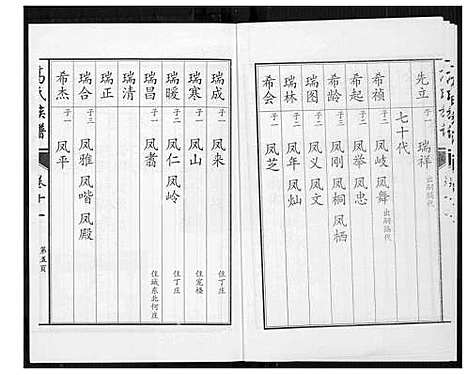 先立 子一 瑞祥 出嗣瑞代
七十代
希祯 子二 凤岐 凤舞 出嗣
希起 子二 凤举 凤忠
希龄 子三 凤刚 凤桐 凤栖
瑞图 子二 凤义 凤文
瑞林 子二 凤年 凤灿
希会 子一 凤芝
瑞成 子一 凤来
瑞寒 子一 凤山 住宠楼
瑞暖 子二 凤仁 凤岭 住丁庄
瑞昌 子一 凤翥 住城东北何庄
瑞清
瑞正
瑞合 子三 凤雅 凤喈 凤殿
希杰 子一 凤平
氏族谱
卷十一
第五页